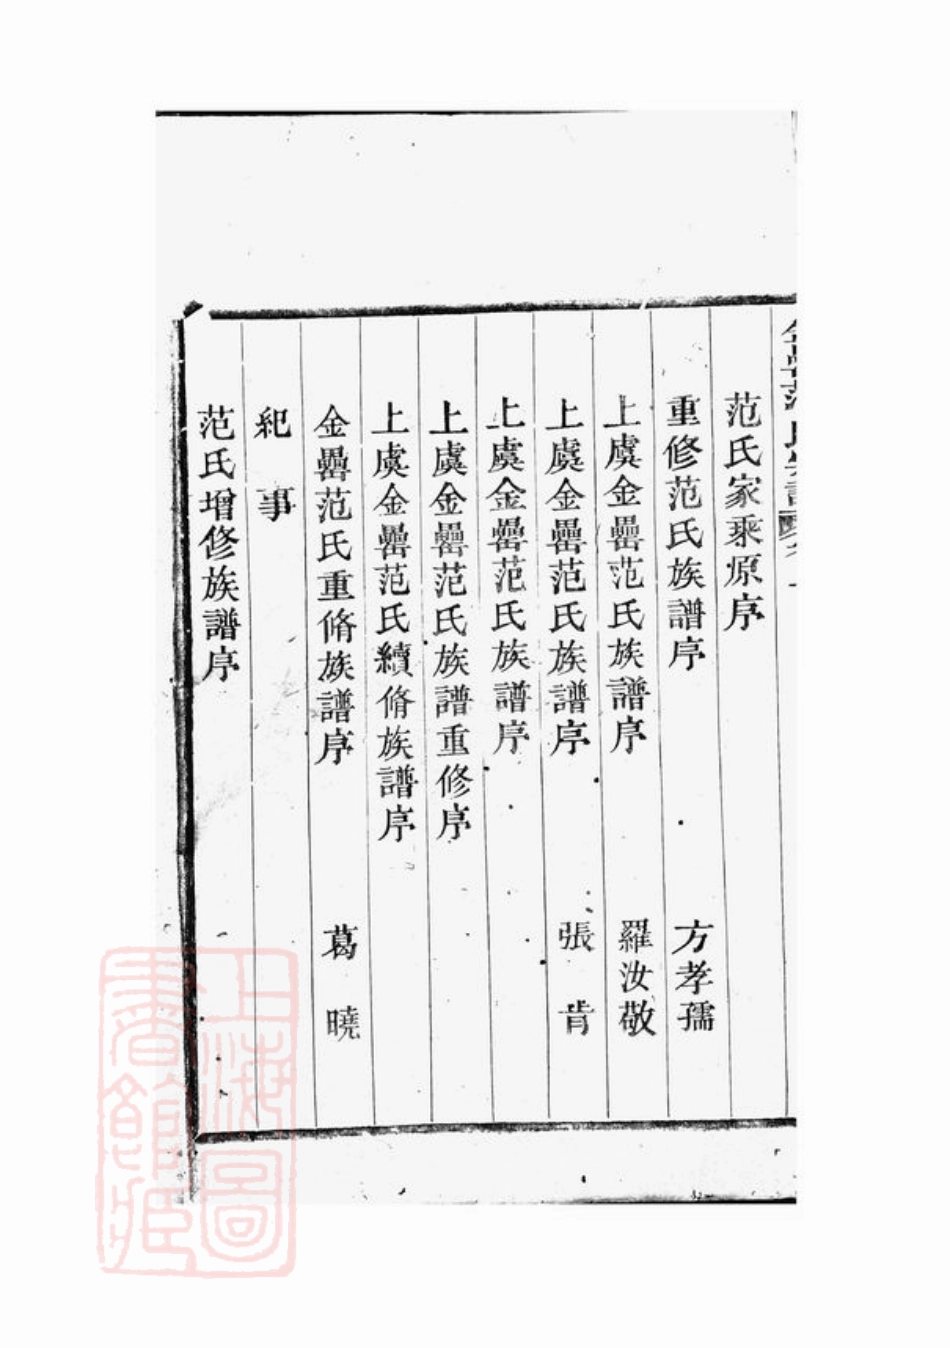 范氏家乘原序
重修范氏族譜序 方孝孺
上虞金罍范氏族譜序 羅汝敬
上虞金罍范氏族譜序 張肯
上虞金罍范氏族譜序
上虞金罍范氏族譜重修序
上虞金罍范氏續脩族譜序
金罍范氏重脩族譜序 葛曉
紀事
范氏增修族譜序
上海圖
書館藏